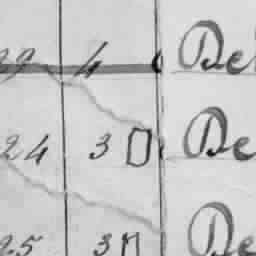 4 De
24 3 De
25 3 De